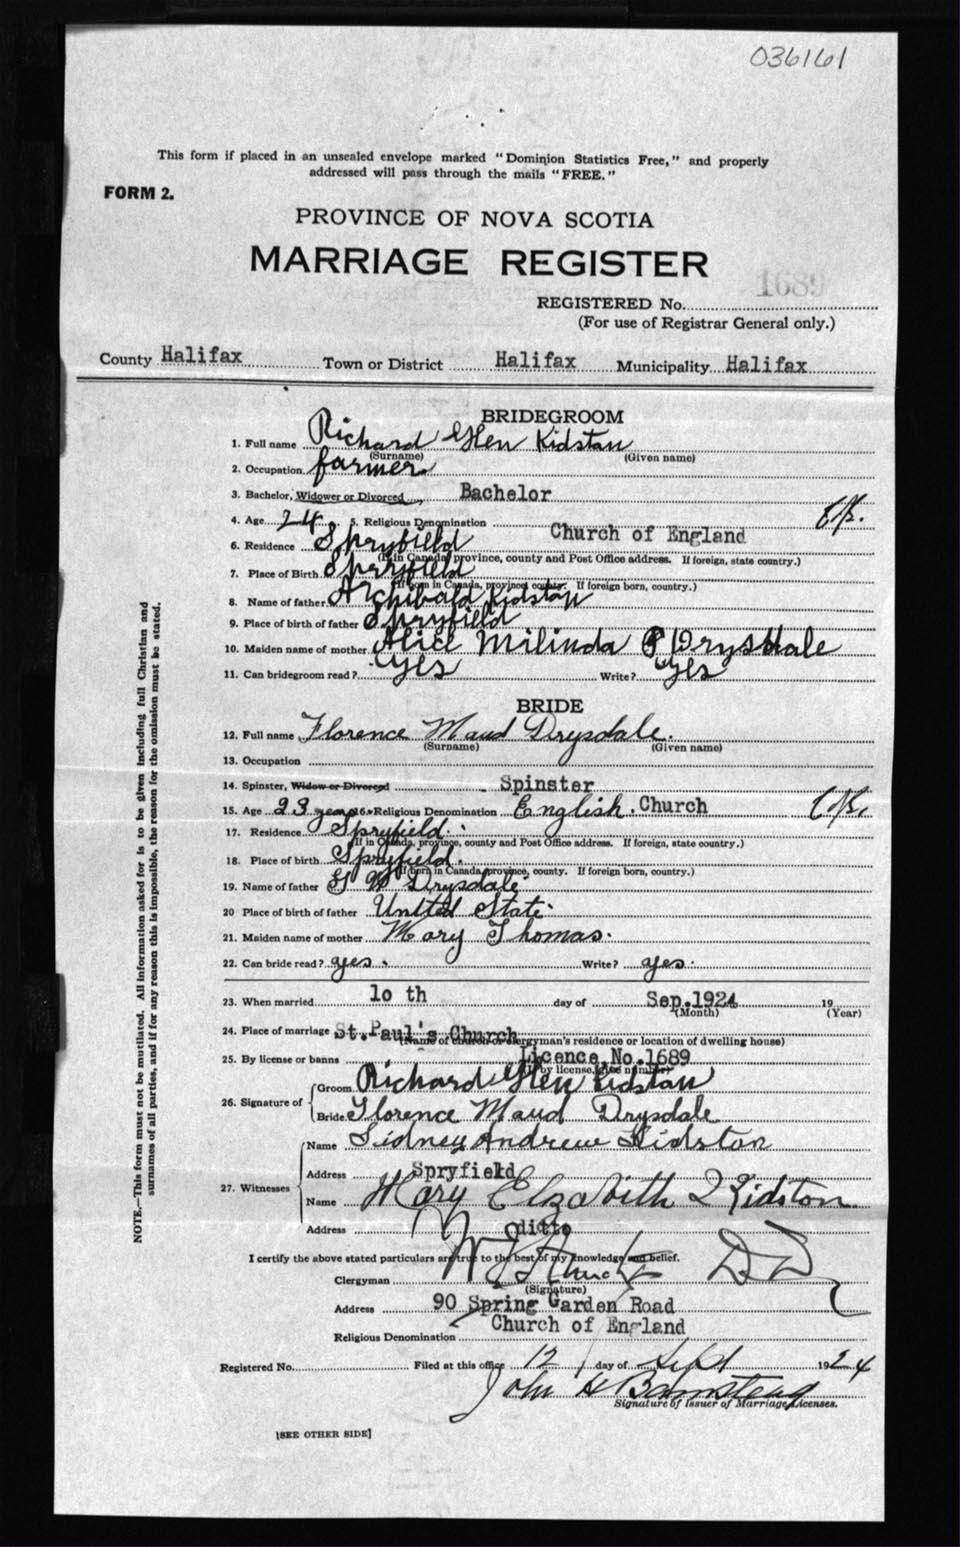 036161
This form if placed in an unsealed envelope marked "Dominion Statistics Free," and properly
addressed will pass through the mails "FREE."
FORM 2.
PROVINCE OF NOVA SCOTIA
MARRIAGE REGISTER
1689
REGISTERED No.
(For use of Registrar General only.)
County Halifax Town or District Halifax Municipality Halifax
BRIDEGROOM
1. Full name Richard Glen Kidstan
(Surname) (Given name)
2. Occupation farmer
3. Bachelor, Widower or Divorced Bachelor
4. Age 24 5. Religious Denomination Church of England
6. Residence Spryfield
(If in Canada, province, county and Post Office address. If foreign, state country.)
7. Place of Birth Spryfield
(If born in Canada, province, county. If foreign born, country.)
8. Name of father Archibald Kidstan
9. Place of birth of father Spryfield
10. Maiden name of mother Alice Milinda Drysdale
11. Can bridegroom read? yes Write? yes
BRIDE
12. Full name Florence Maud Drysdale.
(Surname) (Given name)
13. Occupation
14. Spinster, Widow or Divorced Spinster
15. Age 23 years 16. Religious Denomination English Church
17. Residence Spryfield.
(If in Canada, province, county and Post Office address. If foreign, state country.)
18. Place of birth Spryfield.
(If born in Canada province, county. If foreign born, country.)
19. Name of father W Drysdale
20 Place of birth of father United State
21. Maiden name of mother Mary Thomas.
22. Can bride read? yes. Write? yes.
23. When married 10 th day of Sep.1924 19
(Month) (Year)
24. Place of marriage St.Paul's Church
(Name of church or clergyman's residence or location of dwelling house)
25. By license or banns Licence,No.1689
(If by license, give number)
26. Signature of Groom Richard Glen Kidstan
Bride Florence Maud Drysdale
27. Witnesses Name Sidney Andrew Kidston
Address Spryfield
Name Mary Elzabith Kidston.
Address ditto
I certify the above stated particulars are true to the best of my knowledge and belief.
Clergyman
(Signature)
Address 90 Spring Garden Road
Church of England
Religious Denomination
Registered No. Filed at this office 12 day of Sept 1924
John H Barnstead
Signature of Issuer of Marriage Licenses.
[SEE OTHER SIDE]
NOTE.—This form must not be mutilated. All information asked for is to be given including full Christian and
surnames of all parties, and if for any reason this is impossible, the reason for the omission must be stated.